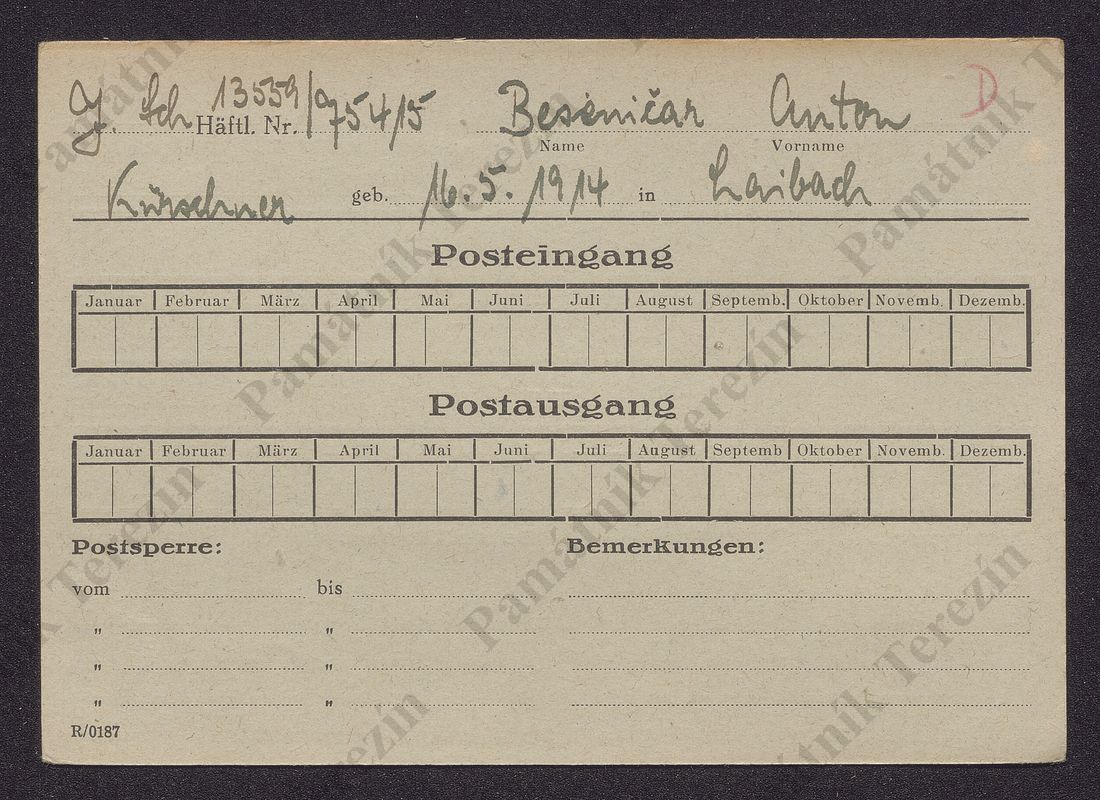 J. Sch Häftl. Nr. 13559/75415 Beseničar Anton D
Name Vorname
Kürschner geb. 16. 5. 1914 in Laibach
Posteingang
Januar Februar März April Mai Juni Juli August Septemb. Oktober Novemb. Dezemb.
Postausgang
Januar Februar März April Mai Juni Juli August Septemb Oktober Novemb. Dezemb.
Postsperre: Bemerkungen:
vom bis
" "
" "
" "
R/0187
Památník Terezín